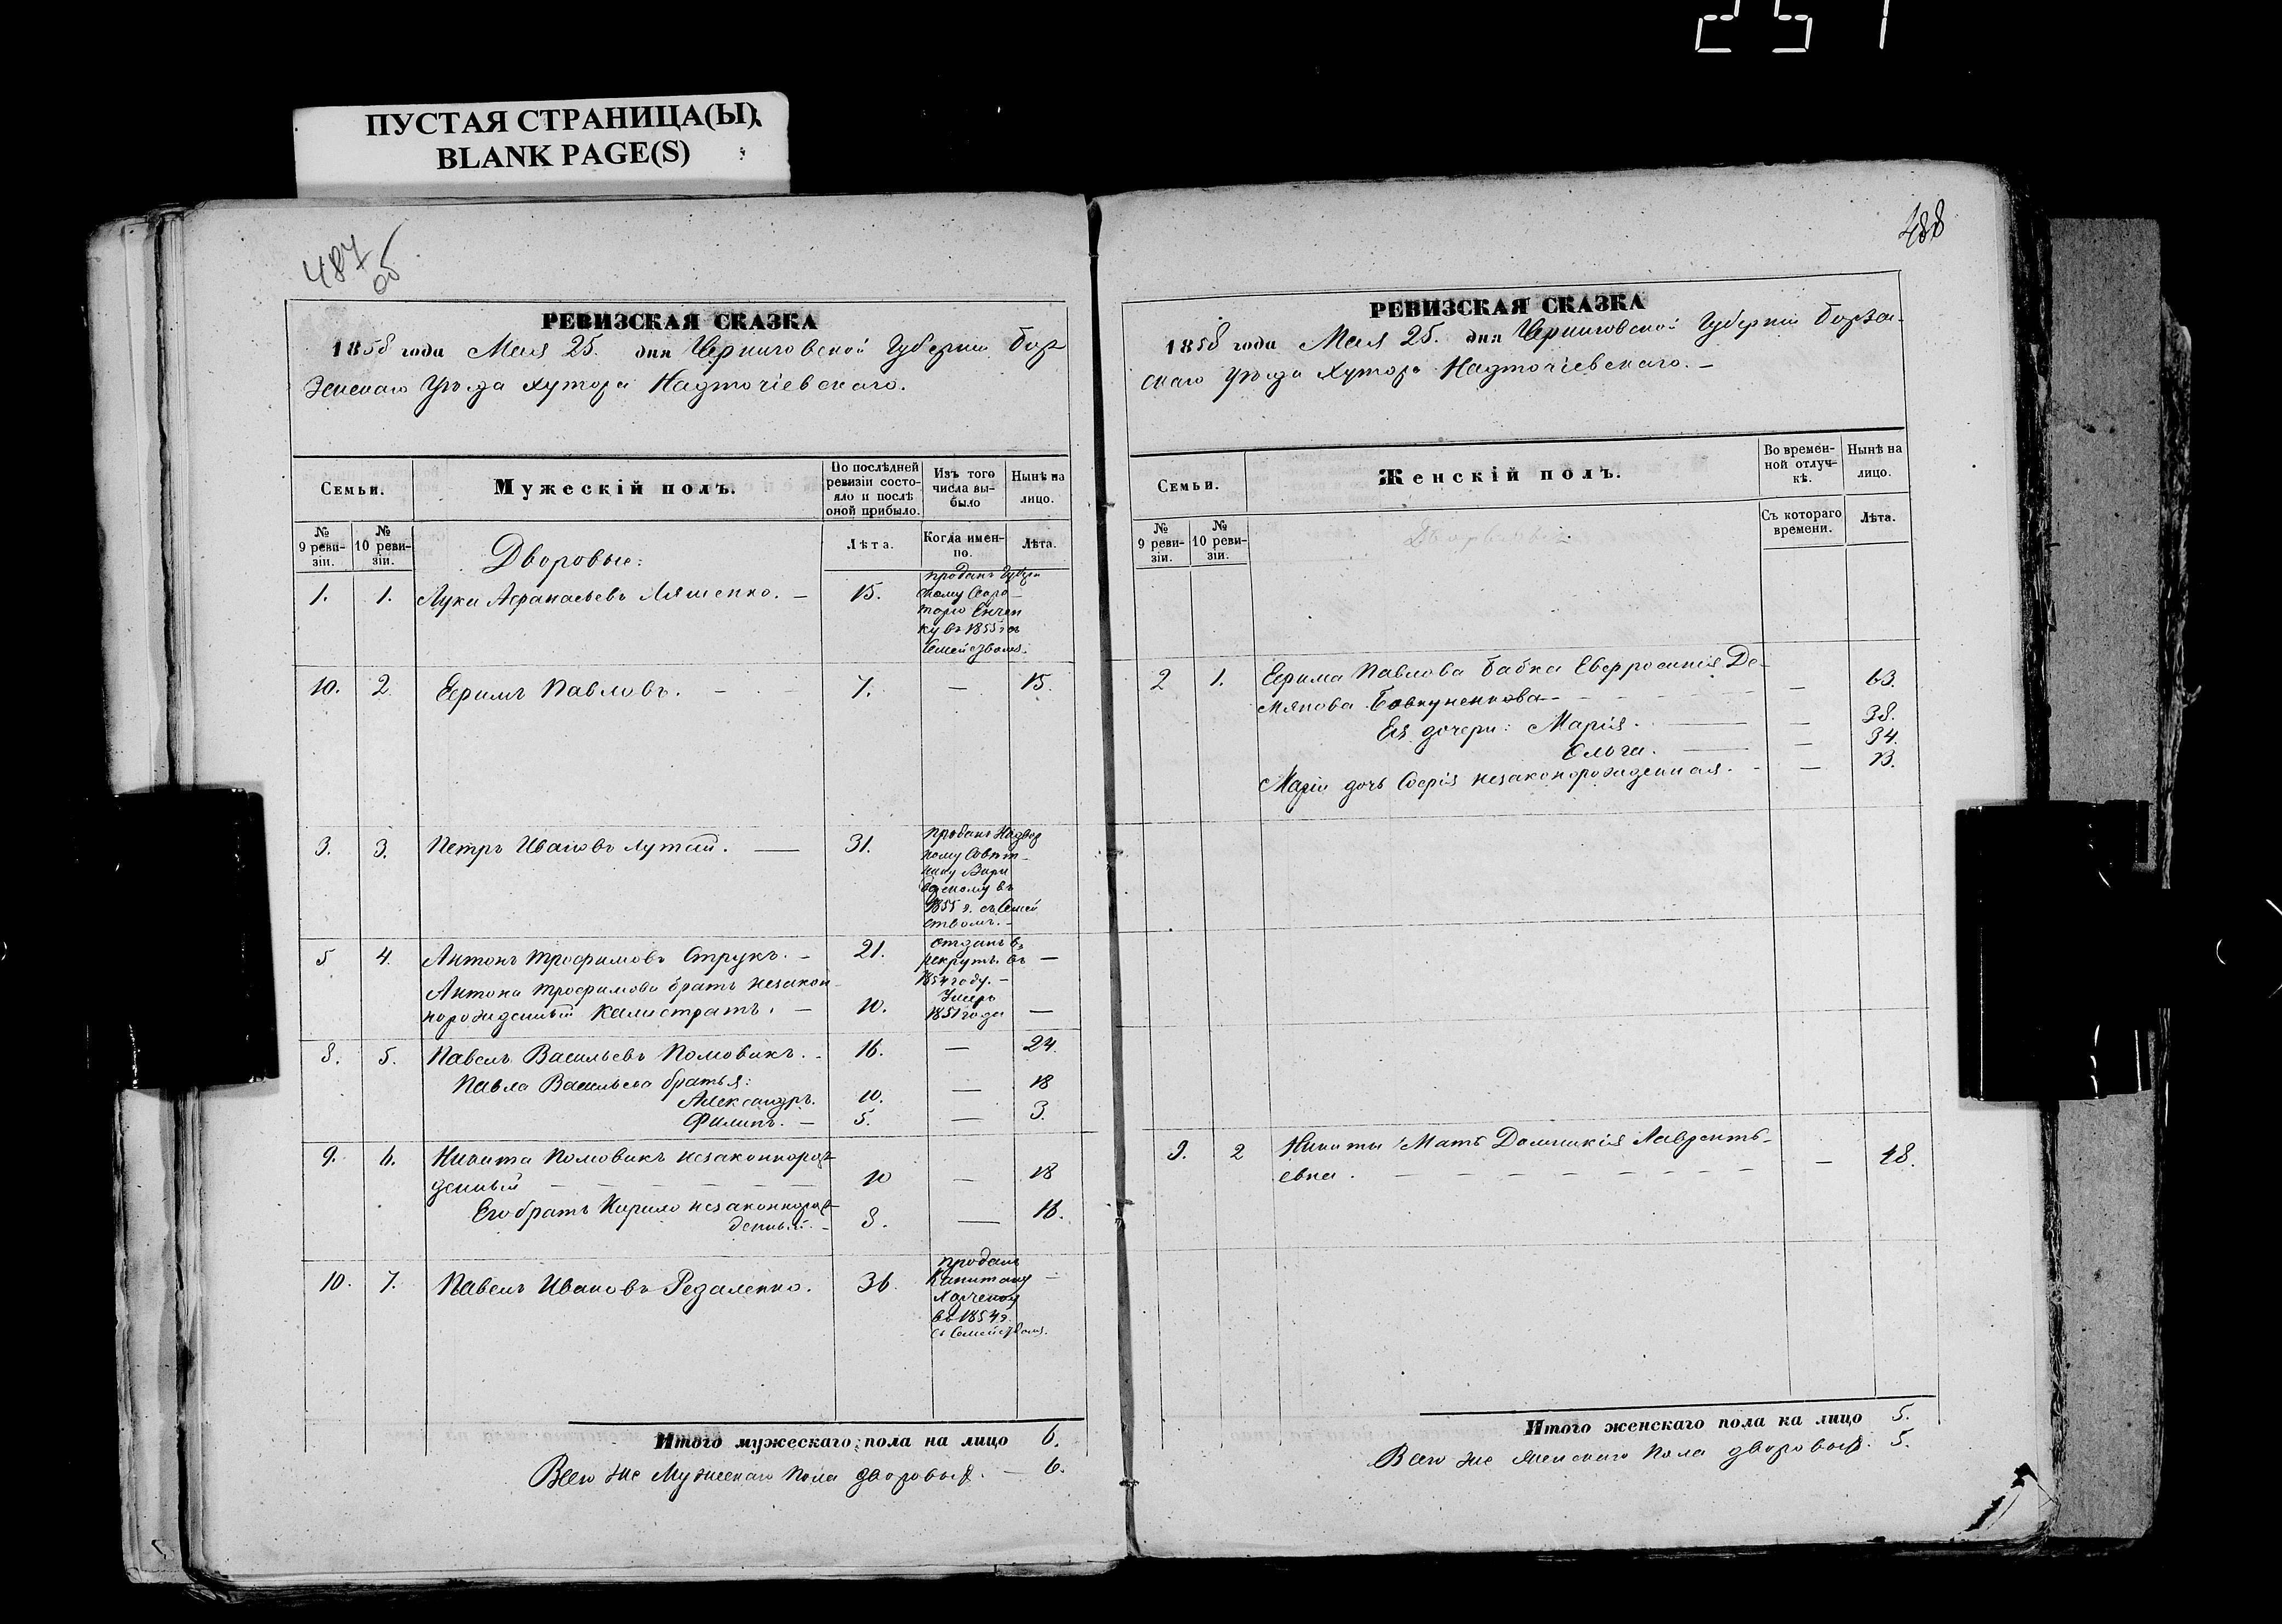 251
ПУСТАЯ СТРАНИЦА(Ы)
BLANK PAGE(S)
487
об
РЕВИЗСКАЯ СКАЗКА
1858 года Мая 25. дня Черниговской Губернiи Бор-
зенскаго Уѣзда хутора Надточiевскаго.
Семьи.
Мужескiй полъ.
По послѣдней ревизiи состояло и послѣ оной прибыло.
Изъ того числа выбыло
Нынѣ на лицо.
№ 9 ревизiи.
№ 10 ревизiи.
Лѣта.
Когда именно.
Лѣта.
Дворовые:
1. 1. Лука Афанасьевъ Ляшенко. — 15.
проданъ Губерн
скому Секре-
тарю
ку въ 1855 г. съ
Семействомъ.
10. 2. Ефимъ Павловъ. — 7. — 15.
3. 3. Петръ Ивановъ Лутай. — 31.
проданъ Надвор
ному Совѣт-
нику
въ
1855 г. съ Семей
ствомъ.
5 4. Антонъ Трофимовъ Струкъ. — 21. отданъ въ рекруты въ 1854 году. —
Антона Трофимова братъ незакон-
норожденный Калистратъ. — 10. Умеръ 1851 года —
8. 5. Павелъ Васильевъ Половикъ. — 16. — 24.
Павла Васильева братья:
Александръ. 10. — 18
Филипъ. — 5. — 13.
9. 6. Никита Половикъ незаконнорож-
денный — 10 — 18
Его братъ Кирило незаконнорож-
денный. — 8. — 16.
10. 7. Павелъ Ивановъ Редаленко. 36.
проданъ
Капитану
въ 1854 г.
съ Семействомъ.
Итого мужескаго пола на лицо 6.
Всего же Мужескаго пола дворовыхъ. — 6.
488
РЕВИЗСКАЯ СКАЗКА
1858 года Мая 25. дня Черниговской Губернiи Борзен-
скаго уѣзда Хутора Надточiевскаго. —
Семьи.
Женскiй полъ.
Во временной отлучкѣ.
Нынѣ на лицо.
№ 9 ревизiи.
№ 10 ревизiи.
Съ котораго времени.
Лѣта.
2 1. Ефима Павлова бабка Евфросинiя Де-
мянова — 63.
Ея дочери: Марiя. — 38.
Ольга. — 34.
Марiи дочь Софiя незаконорожденная. — 13.
9. 2 Никиты Мать Домникiя Лаврентъ-
евна. — 48.
Итого женскаго пола на лицо 5.
Всего же женскаго пола дворовыхъ. 5.